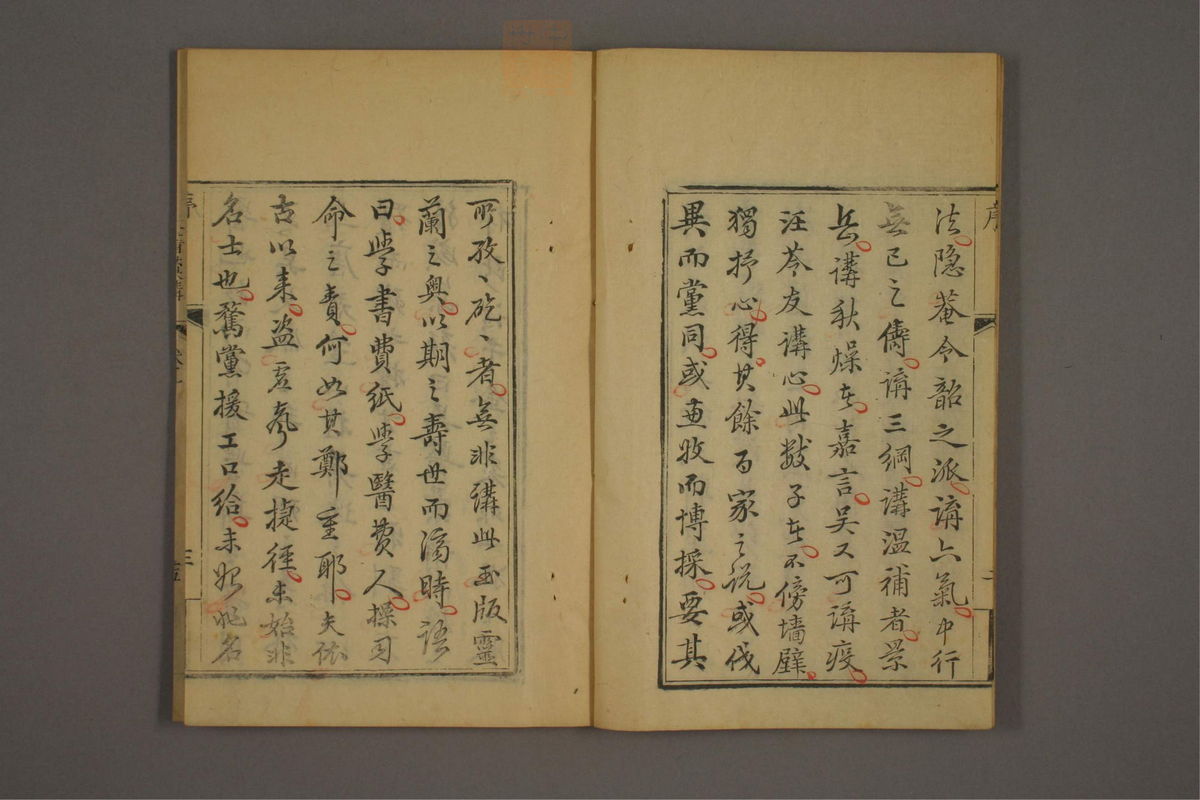 法隱菴令韶之派講六氣中行
無已之儔講三綱講溫補者景
岳講秋燥在嘉言吳又可講疫
汪苓友講心此數子在不傍墻壁
獨抒心得其餘百家之說或伐
異而黨同或兼收而博採要其
所孜〻矻〻者無非講此玉版靈
蘭之奧以期之壽世而濟時語
曰學書費紙學醫費人操司
命之責何如其鄭重耶夫依
古以來盜虛聲走捷徑未始非
名士也騖黨援工口給未始非名
序
三